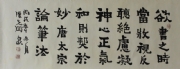 欲書之時
當收視反
聽絕慮凝
神心正氣
和則契於
妙唐太宗
論筆法